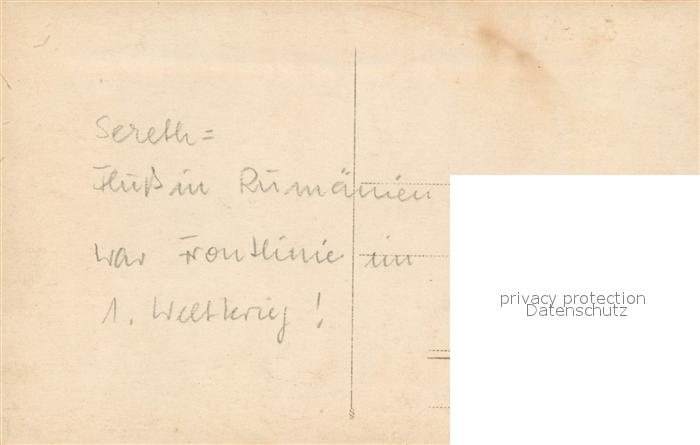 Sereth=
Fluß in Rumänien
war Frontlinie im
1. Weltkrieg!
privacy protection
Datenschutz